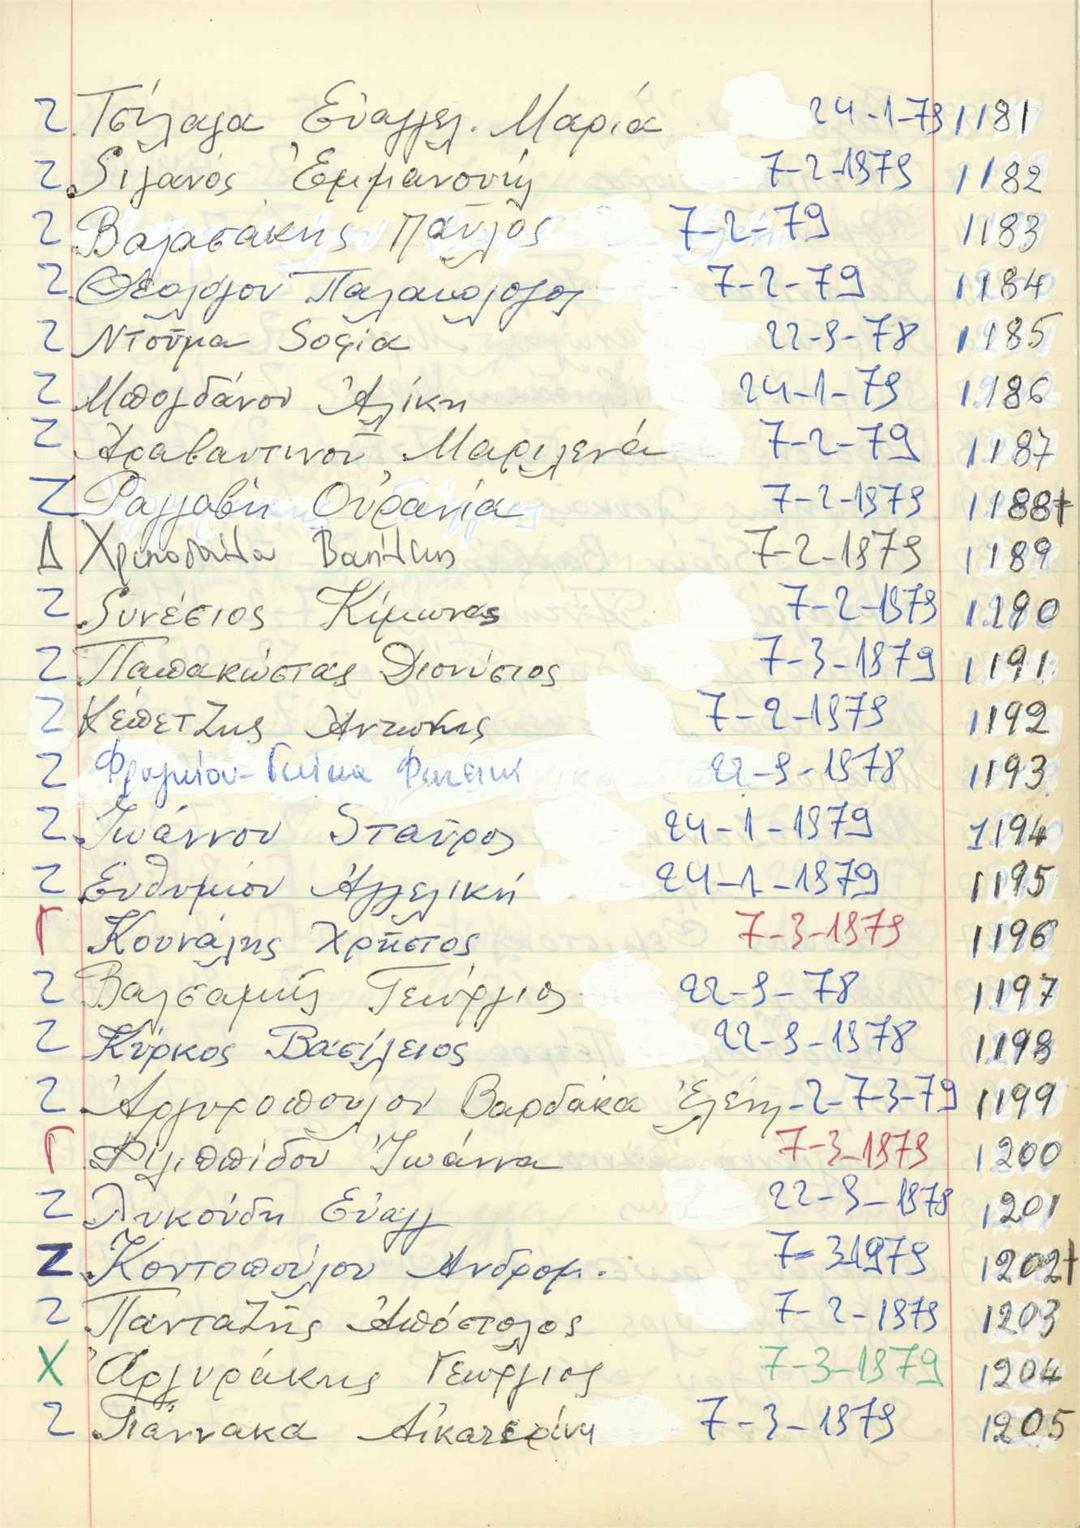 Ζ Τσίλαλα Εὐαγγελ. Μαρία 24-1-79 1181
Ζ Σιγανός Ἐμμανουήλ 7-2-1979 1182
Ζ Βαλασάκης Παῦλος 7-2-79 1183
Ζ Θεολόγου Παλαιολόγος 7-2-79 1184
Ζ Ντούμα Σοφία 22-9-78 1185
Ζ Μπογδάνου Ἀλίκη 24-1-79 1186
Ζ Ἀραβαντινοῦ Μαριλενά 7-2-79 1187
Ζ Ραλλαβῆ Οὐρανία 7-2-1979 1188+
Δ Βασίλης 7-2-1979 1189
Ζ Συνέσιος Κίμωνας 7-2-1979 1190
Ζ Παπακώστας Διονύσιος 7-3-1979 1191
Ζ Κεπετζῆς Ἀντώνης 7-2-1979 1192
Ζ Γκίκα 22-9-1978 1193
Ζ Ἰωάννου Σταῦρος 24-1-1979 1194
Ζ Εὐθυμίου Ἀγγελική 24-1-1979 1195
Γ Κουνάλης Χρῆστος 7-3-1979 1196
Ζ Βαλσαμῆς Γεώργιος 22-9-78 1197
Ζ Κύρκος Βασίλειος 22-9-1978 1198
Ζ Ἀργυροπούλου Βαρδάκα Ἑλένη-2-7-3-79 1199
Γ Φιλιππίδου Ἰωάννα 7-3-1979 1200
Ζ Λυκούδη Εὐαγγ 22-9-1978 1201
Ζ Κοντοπούλου Ἀνδρομ. 7-3-1979 1202+
Ζ Πανταζῆς Ἀπόστολος 7-2-1979 1203
Χ Ἀργυράκης Γεώργιος 7-3-1979 1204
Ζ Γιάννακα Αἰκατερίνη 7-3-1979 1205